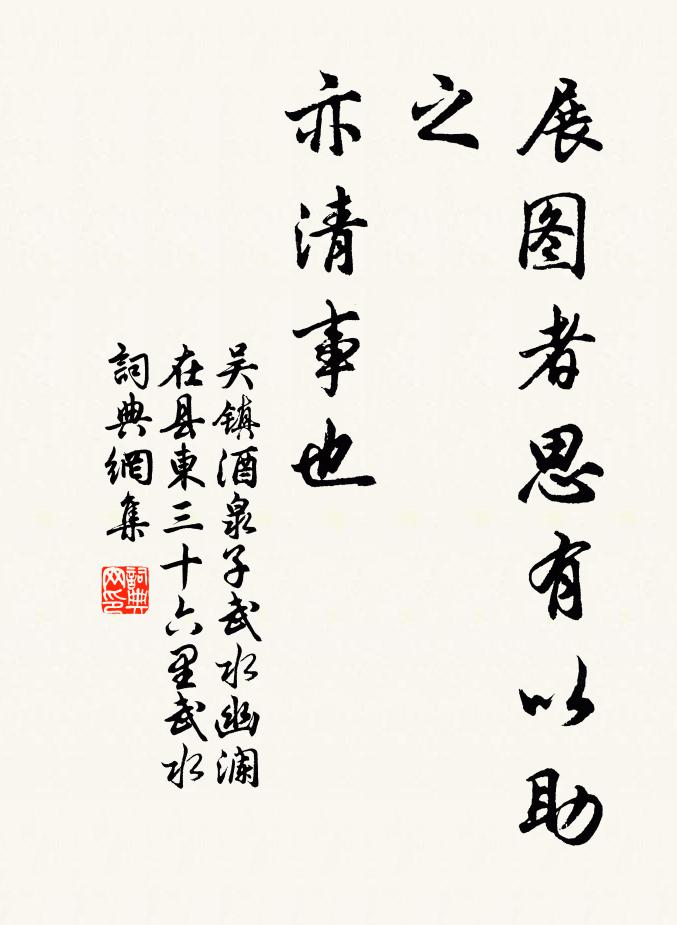 展图者思有以助
之
亦清事也
吴镇酒泉子武水幽澜
在县東三十六里武水
詞典網集
詞典
网印